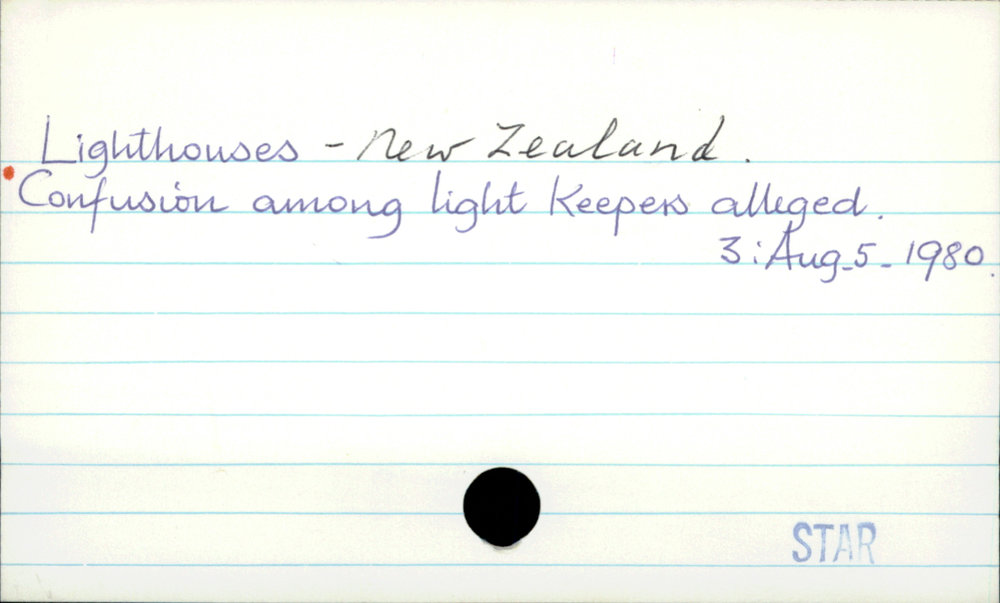 Lighthouses - New Zealand.
Confusion among light Keepers alleged.
3: Aug-5-1980.
STAR